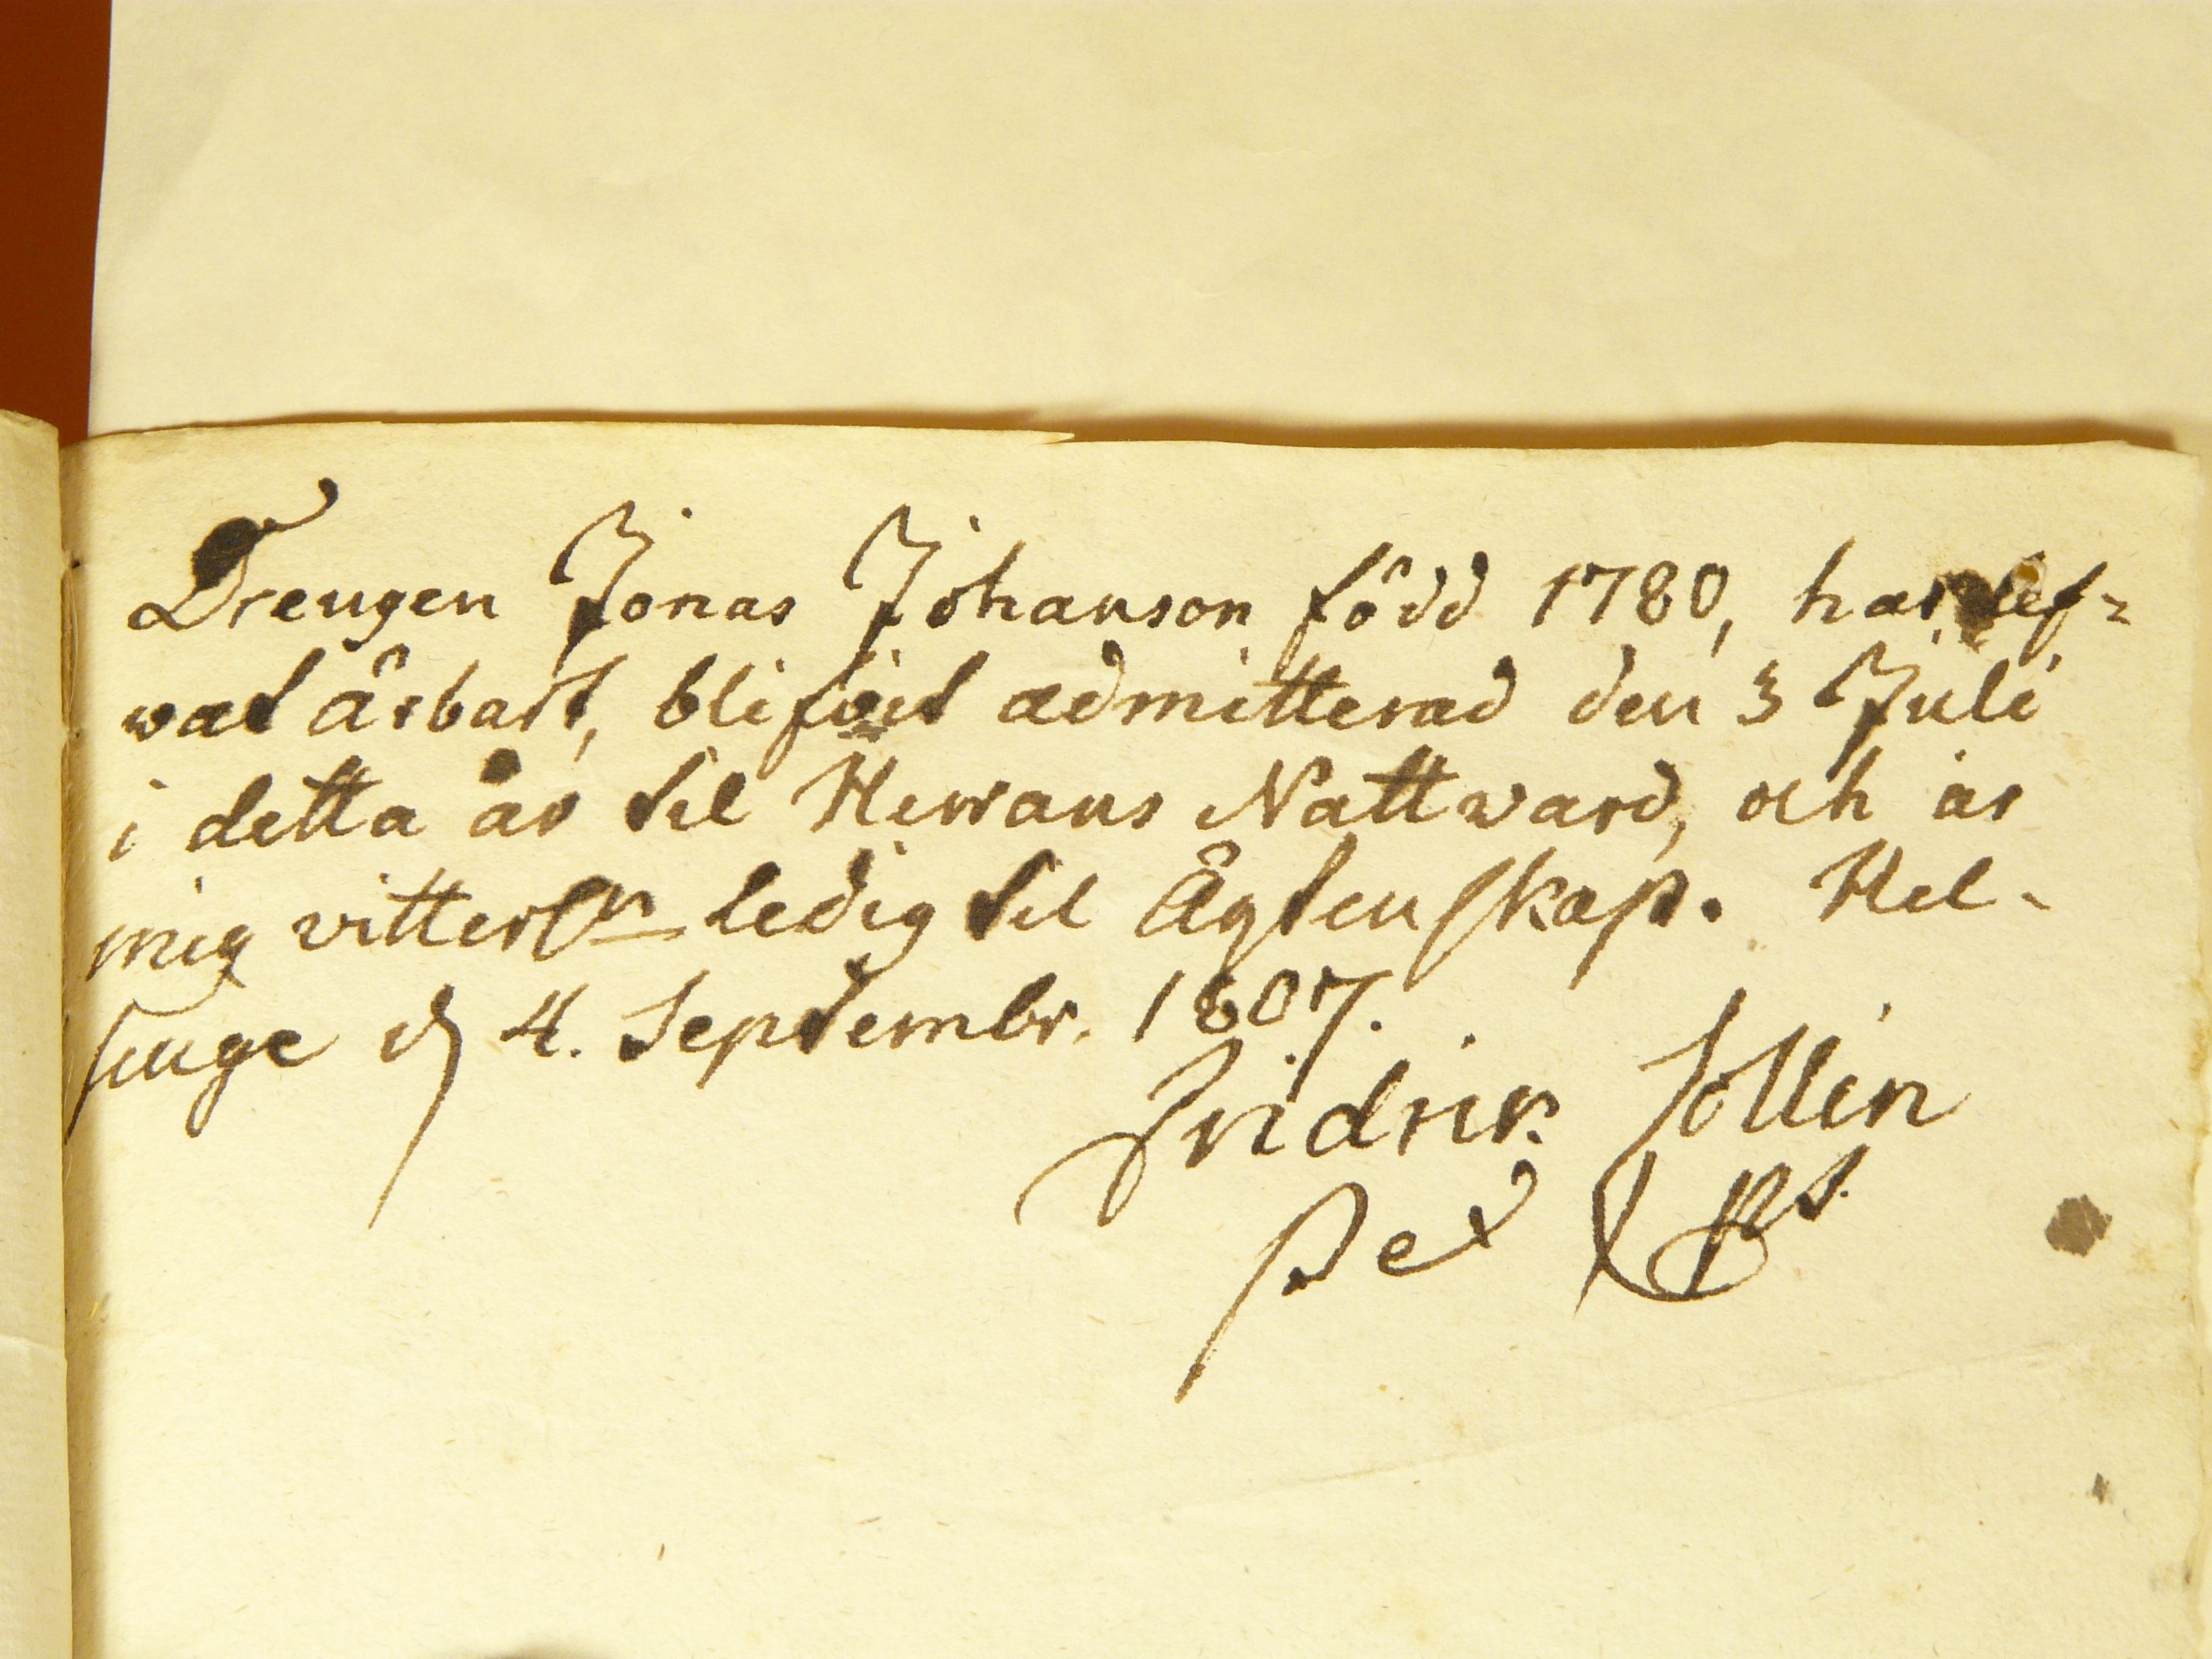 Drengen Jonas Johanson född 1780, har lef=
wat ärbart, blifvit admitterad den 3 Juli
i detta år til Herrans Nattward, och är
mig vitterl:n ledig til Ägtenskap. Hel-
singe d 4. Septembr. 1807.
Fridric Collin
Past